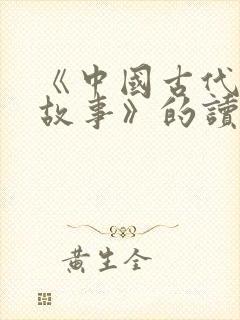 《中國古代
故事》的讀
黃生全